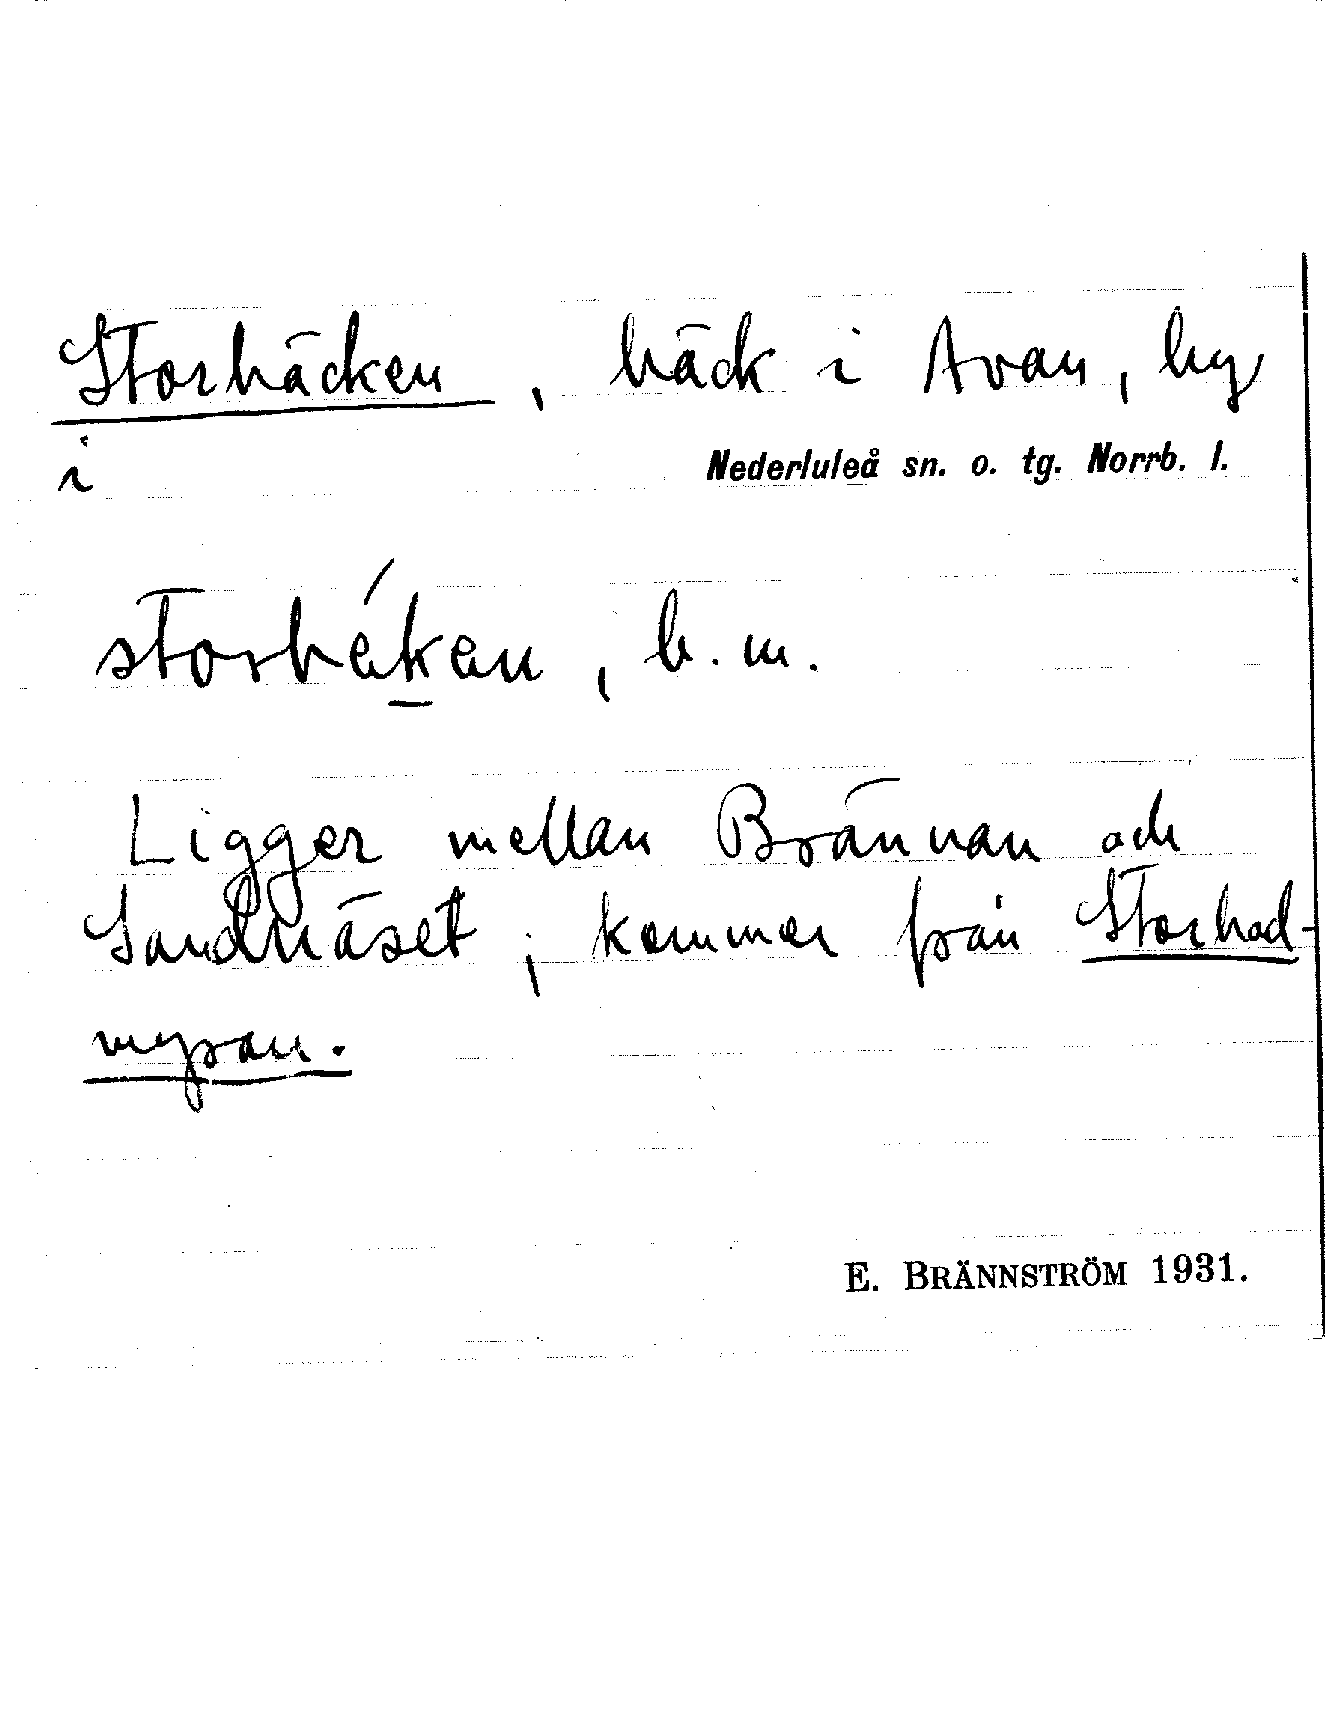 Storbäcken, bäck i Avan, by
i Nederluleå sn. o. tg. Norrb. l.
storbéken, b. m.
Ligger mellan Brännan och
Sandnäset; kommer från Storhad-
myran.
E. BRÄNNSTRÖM 1931.